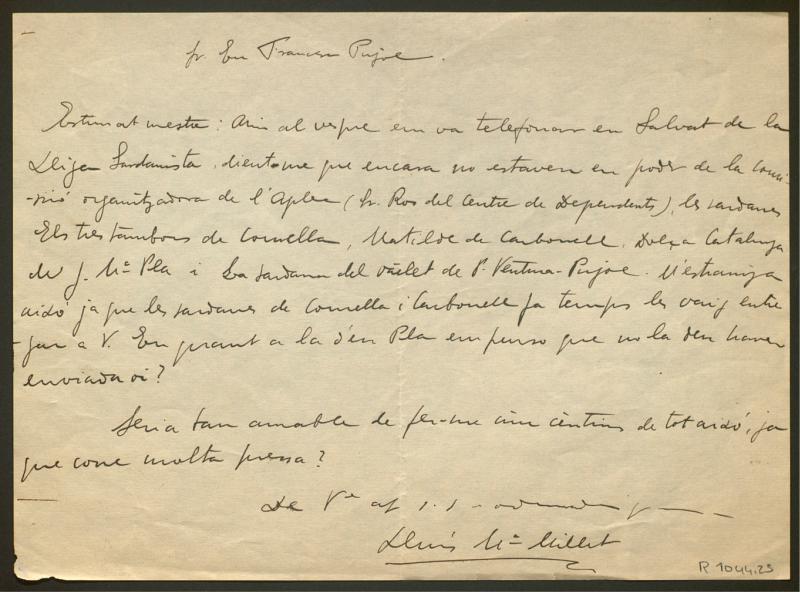 Sr. En Francesc Pujol.
Estimat mestre: Ahir al vespre em va telefonar en Salvat de la
Lliga Sardanista, dient-me que encara no estaven en poder de la comi-
-ssió organitzadora de l'Aplec (Sr. Ros del Centre de Dependents), les sardanes
Els tres tambors de Comella, Matilde de Carbonell, Dolça Catalunya
de J. Mª Pla i La sardana del vailet de P. Ventura-Pujol. M'estranya
aixó ja que les sardanes de Comella i Carbonell fa temps les vaig entre
-gar a V. En quant a la d'en Pla em penso que no la deu haver
enviada oi?
Seria tan amable de fer-me cinc cèntims de tot aixó, ja
que corre molta pressa?
De Vè af. s. s.
Lluís Mª Millet
R 1044.25